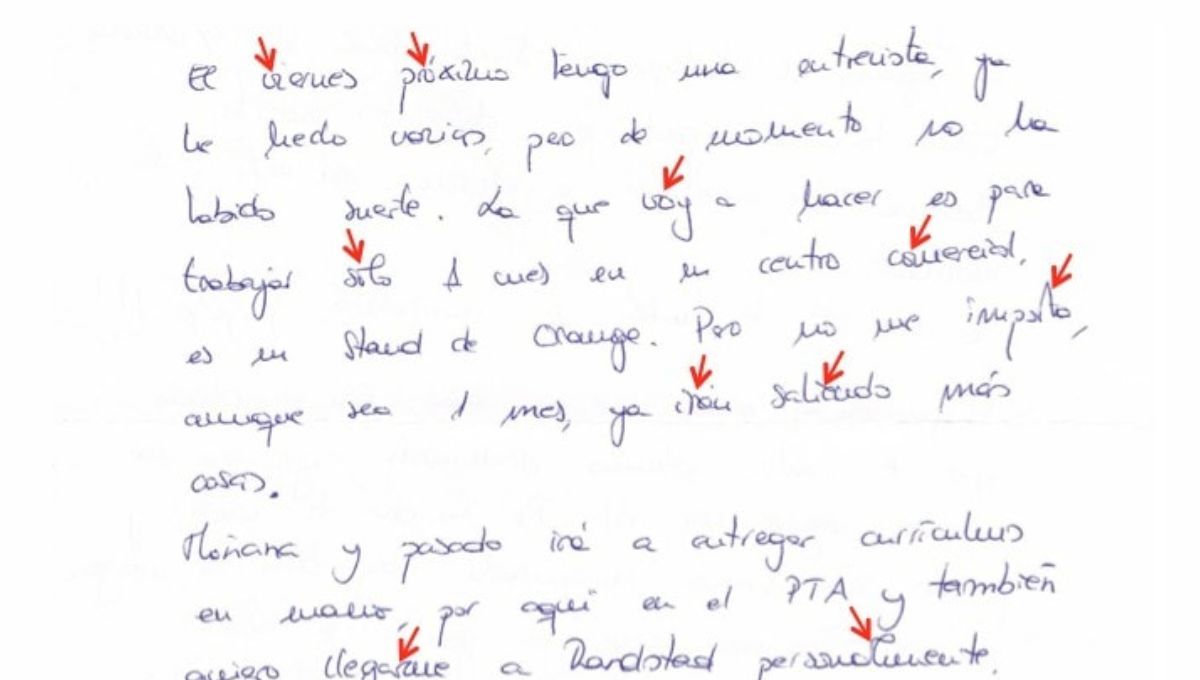 El viernes próximo tengo una entrevista, ya
he hedo varias, pero de momento no ha
habido suerte. La que voy a hacer es para
trabajar sólo 1 mes en un centro comercial,
es un Stand de Orange. Pero no me importa,
aunque sea 1 mes, ya irán saliendo más
cosas.
Mañana y pasado iré a entregar currículums
en mano, por aquí en el PTA y también
quiero llegarme a Randstad personalmente.